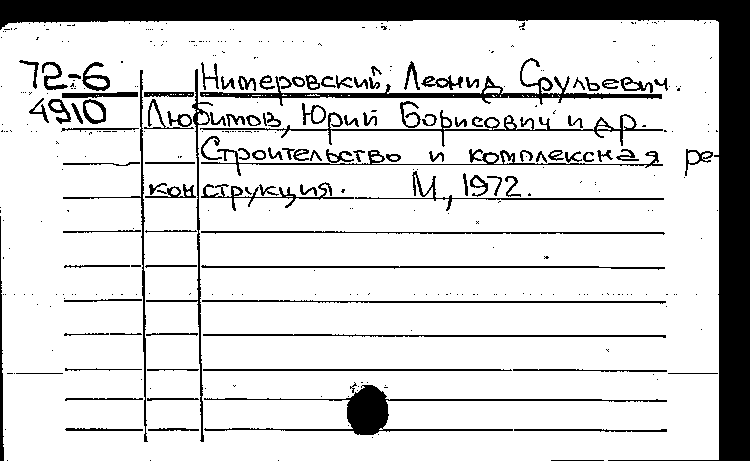 72-6 Нитеровский, Леонид Срульевич.
4910 Любитов, Юрий Борисович и др.
Строительство и комплексная ре-
конструкция. М., 1972.